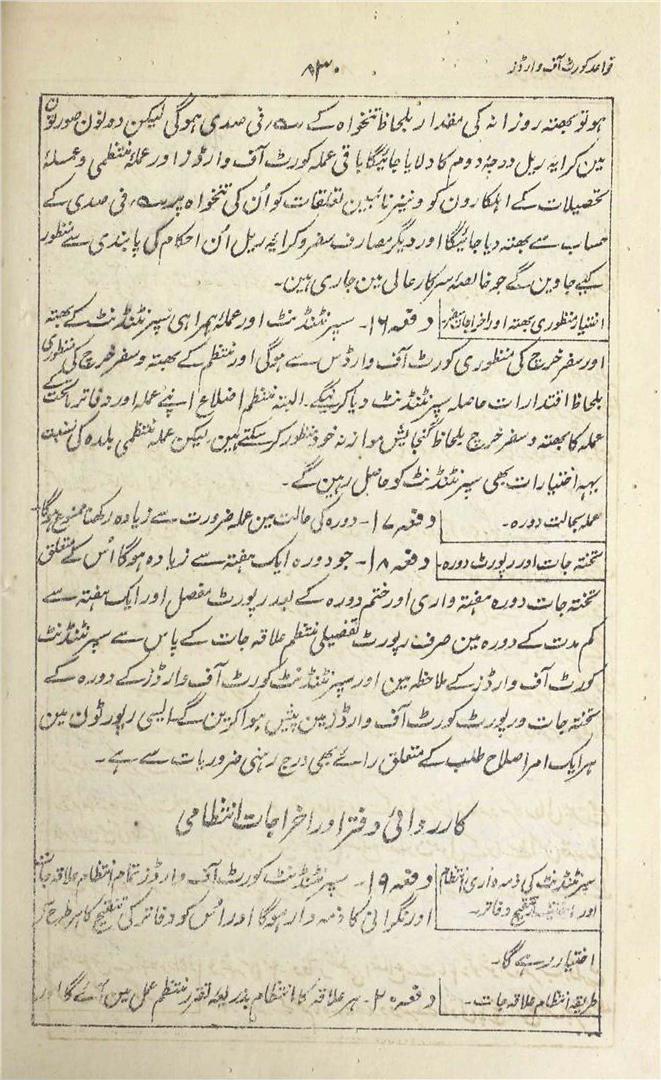 قواعد کورٹ آف وارڈز
۸۳۰
ہو تو بھتہ روزانہ کی مقدار بلحاظ تنخواہ کے فی صدی ہوگی لیکن دونوں صورتوں
مین کرایہ ریل درجۂ دوم کا دلایا جائیگا باقی عملہ کورٹ آف وارڈز اور عملۂ منتظمی و عملۂ
تحصیلات کے اہلکارون کو و نیز نائبین تعلقات کو اُن کی تنخواہ پر فی صدی کے
حساب سے بھتہ دیا جائیگا اور دیگر مصارف سفر و کرایہ ریل اُن احکام کی پابندی سے منظور
کیے جاوین گے جو خالصۂ سرکار عالی مین جاری ہین۔
اختیار منظوری بھتہ اور اخراجات سفر۔ دفعہ ۱۶۔ سپرنٹنڈنٹ اور عملۂ ہمراہی سپرنٹنڈنٹ کے بھتہ
اور سفر خرچ کی منظوری کورٹ آف وارڈس سے ہوگی اور منتظم کے بھتہ و سفر خرچ کی منظوری
بلحاظ اقتدارات حاصلہ سپرنٹنڈنٹ دیا کرینگے۔ البتہ منتظم اضلاع اپنے عملہ اور دفاتر ماتحت کے
عملہ کا بھتہ و سفر خرچ بلحاظ گنجایش موازنہ خود منظور کر سکتے ہین لیکن عملہ منتظمی بلدہ کی نسبت
یہہ اختیارات بھی سپرنٹنڈنٹ کو حاصل رہین گے۔
عملہ بحالت دورہ۔ دفعہ ۱۷۔ دورہ کی حالت مین عملہ ضرورت سے زیادہ رکھنا ممنوع ہوگا
تختہ جات اور رپورٹ دورہ۔ دفعہ ۱۸۔ جو دورہ ایک ہفتہ سے زیادہ ہوگا اُس کے متعلق
تختہ جات دورہ ہفتہ واری اور ختم دورہ کے بعد رپورٹ مفصل اور ایک ہفتہ سے
کم مدت کے دورہ مین صرف رپورٹ تفصیلی منتظم علاقہ جات کے پاس سے سپرنٹنڈنٹ
کورٹ آف وارڈز کے ملاحظہ مین اور سپرنٹنڈنٹ کورٹ آف وارڈز کے دورہ کے
تختہ جات و رپورٹ کورٹ آف وارڈز مین پیش ہوا کرین گے۔ ایسی رپورٹون مین
ہر ایک امر اصلاح طلب کے متعلق رائے بھی درج رہنی ضروریات سے ہے۔
کارروائی دفتر اور اخراجات انتظامی
سپرنٹنڈنٹ کی ذمہ داری انتظام دفعہ ۱۹۔ سپرنٹنڈنٹ کورٹ آف وارڈز تمام انتظام علاقہ جات
اور تنقیح دفاتر۔ اور نگرانی کا ذمہ دار ہوگا اور اُس کو دفاتر کی تنقیح کا ہر طرح
اختیار رہے گا۔
طریقہ انتظام علاقہ جات۔ دفعہ ۲۰۔ ہر علاقہ کا انتظام بذریعہ تقرر منتظم عمل مین آئے گا اور